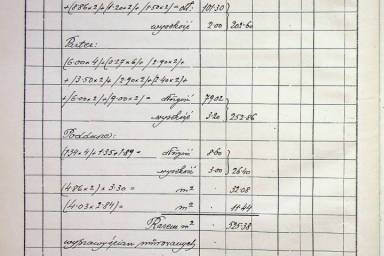 +(0.86×2)+(4.20×2)+(1.50×2)= dł: 101.30
wysokość 2.00 202.60
Parter:
(6.00×4)+(0.27×6)+(2.90×2)+
+(3.50×2)+(2.90×2)+(2.40×2)+
+(6.00×2)+(9.00×2)= długość 79.02
wysokość 3.20 252.86
Poddasze:
(1.34×4)+1.35+1.89= długość 8.60
wysokość 3.00 26.40
(4.86×2)×3.30= m² 32.08
(4.03×2.84)= m² 11.44
Razem m² 525.38
wyprawy ścian murowanych